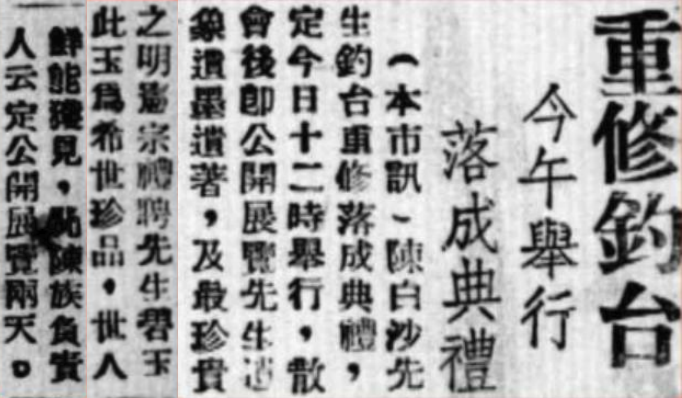 重修釣台
今午舉行
落成典禮
（本市訊）陳白沙先
生釣台重修落成典禮，
定今日十二時舉行，散
會後即公開展覽先生遺
象遺墨遺著，及最珍貴
之明憲宗禮聘先生碧玉
此玉爲希世珍品，世人
鮮能獲見，點陳族負責
人云定公開展覽兩天。